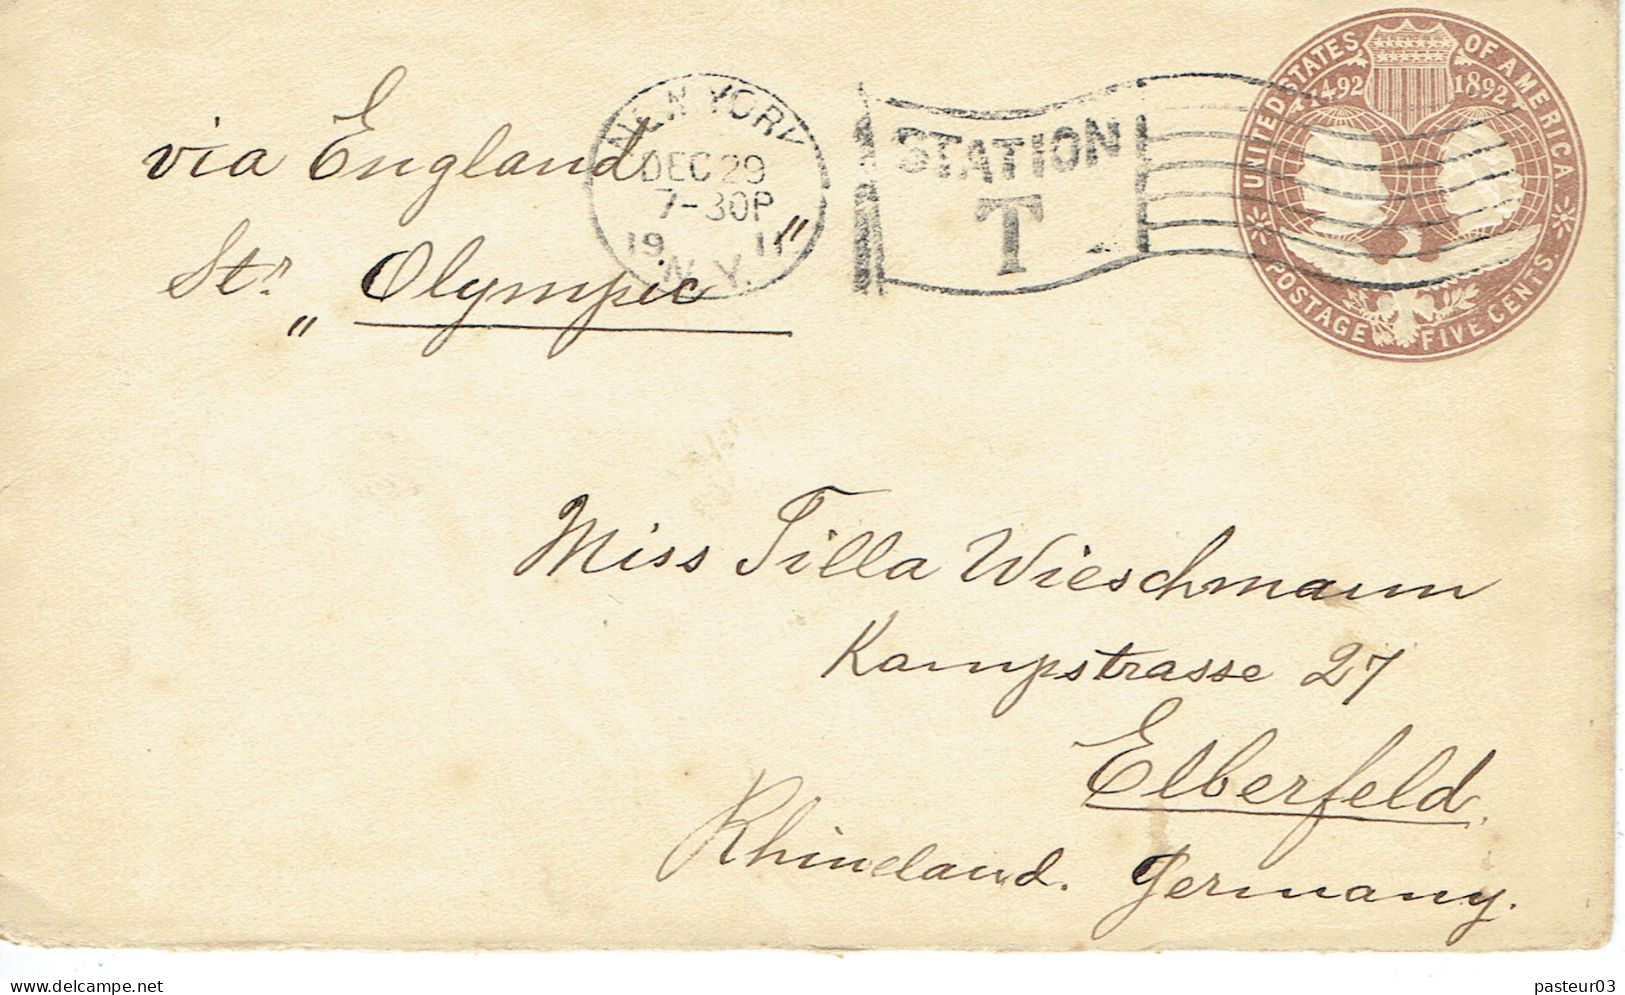 via England
Str. „Olympic"
NEW YORK
DEC 29
7-30P
1911
N.Y.
STATION
T
UNITED STATES OF AMERICA
1492 1892
POSTAGE FIVE CENTS.
Miss Tilla Wieschmann
Kampstrasse 27
Elberfeld.
Rhineland. Germany.
pasteur03